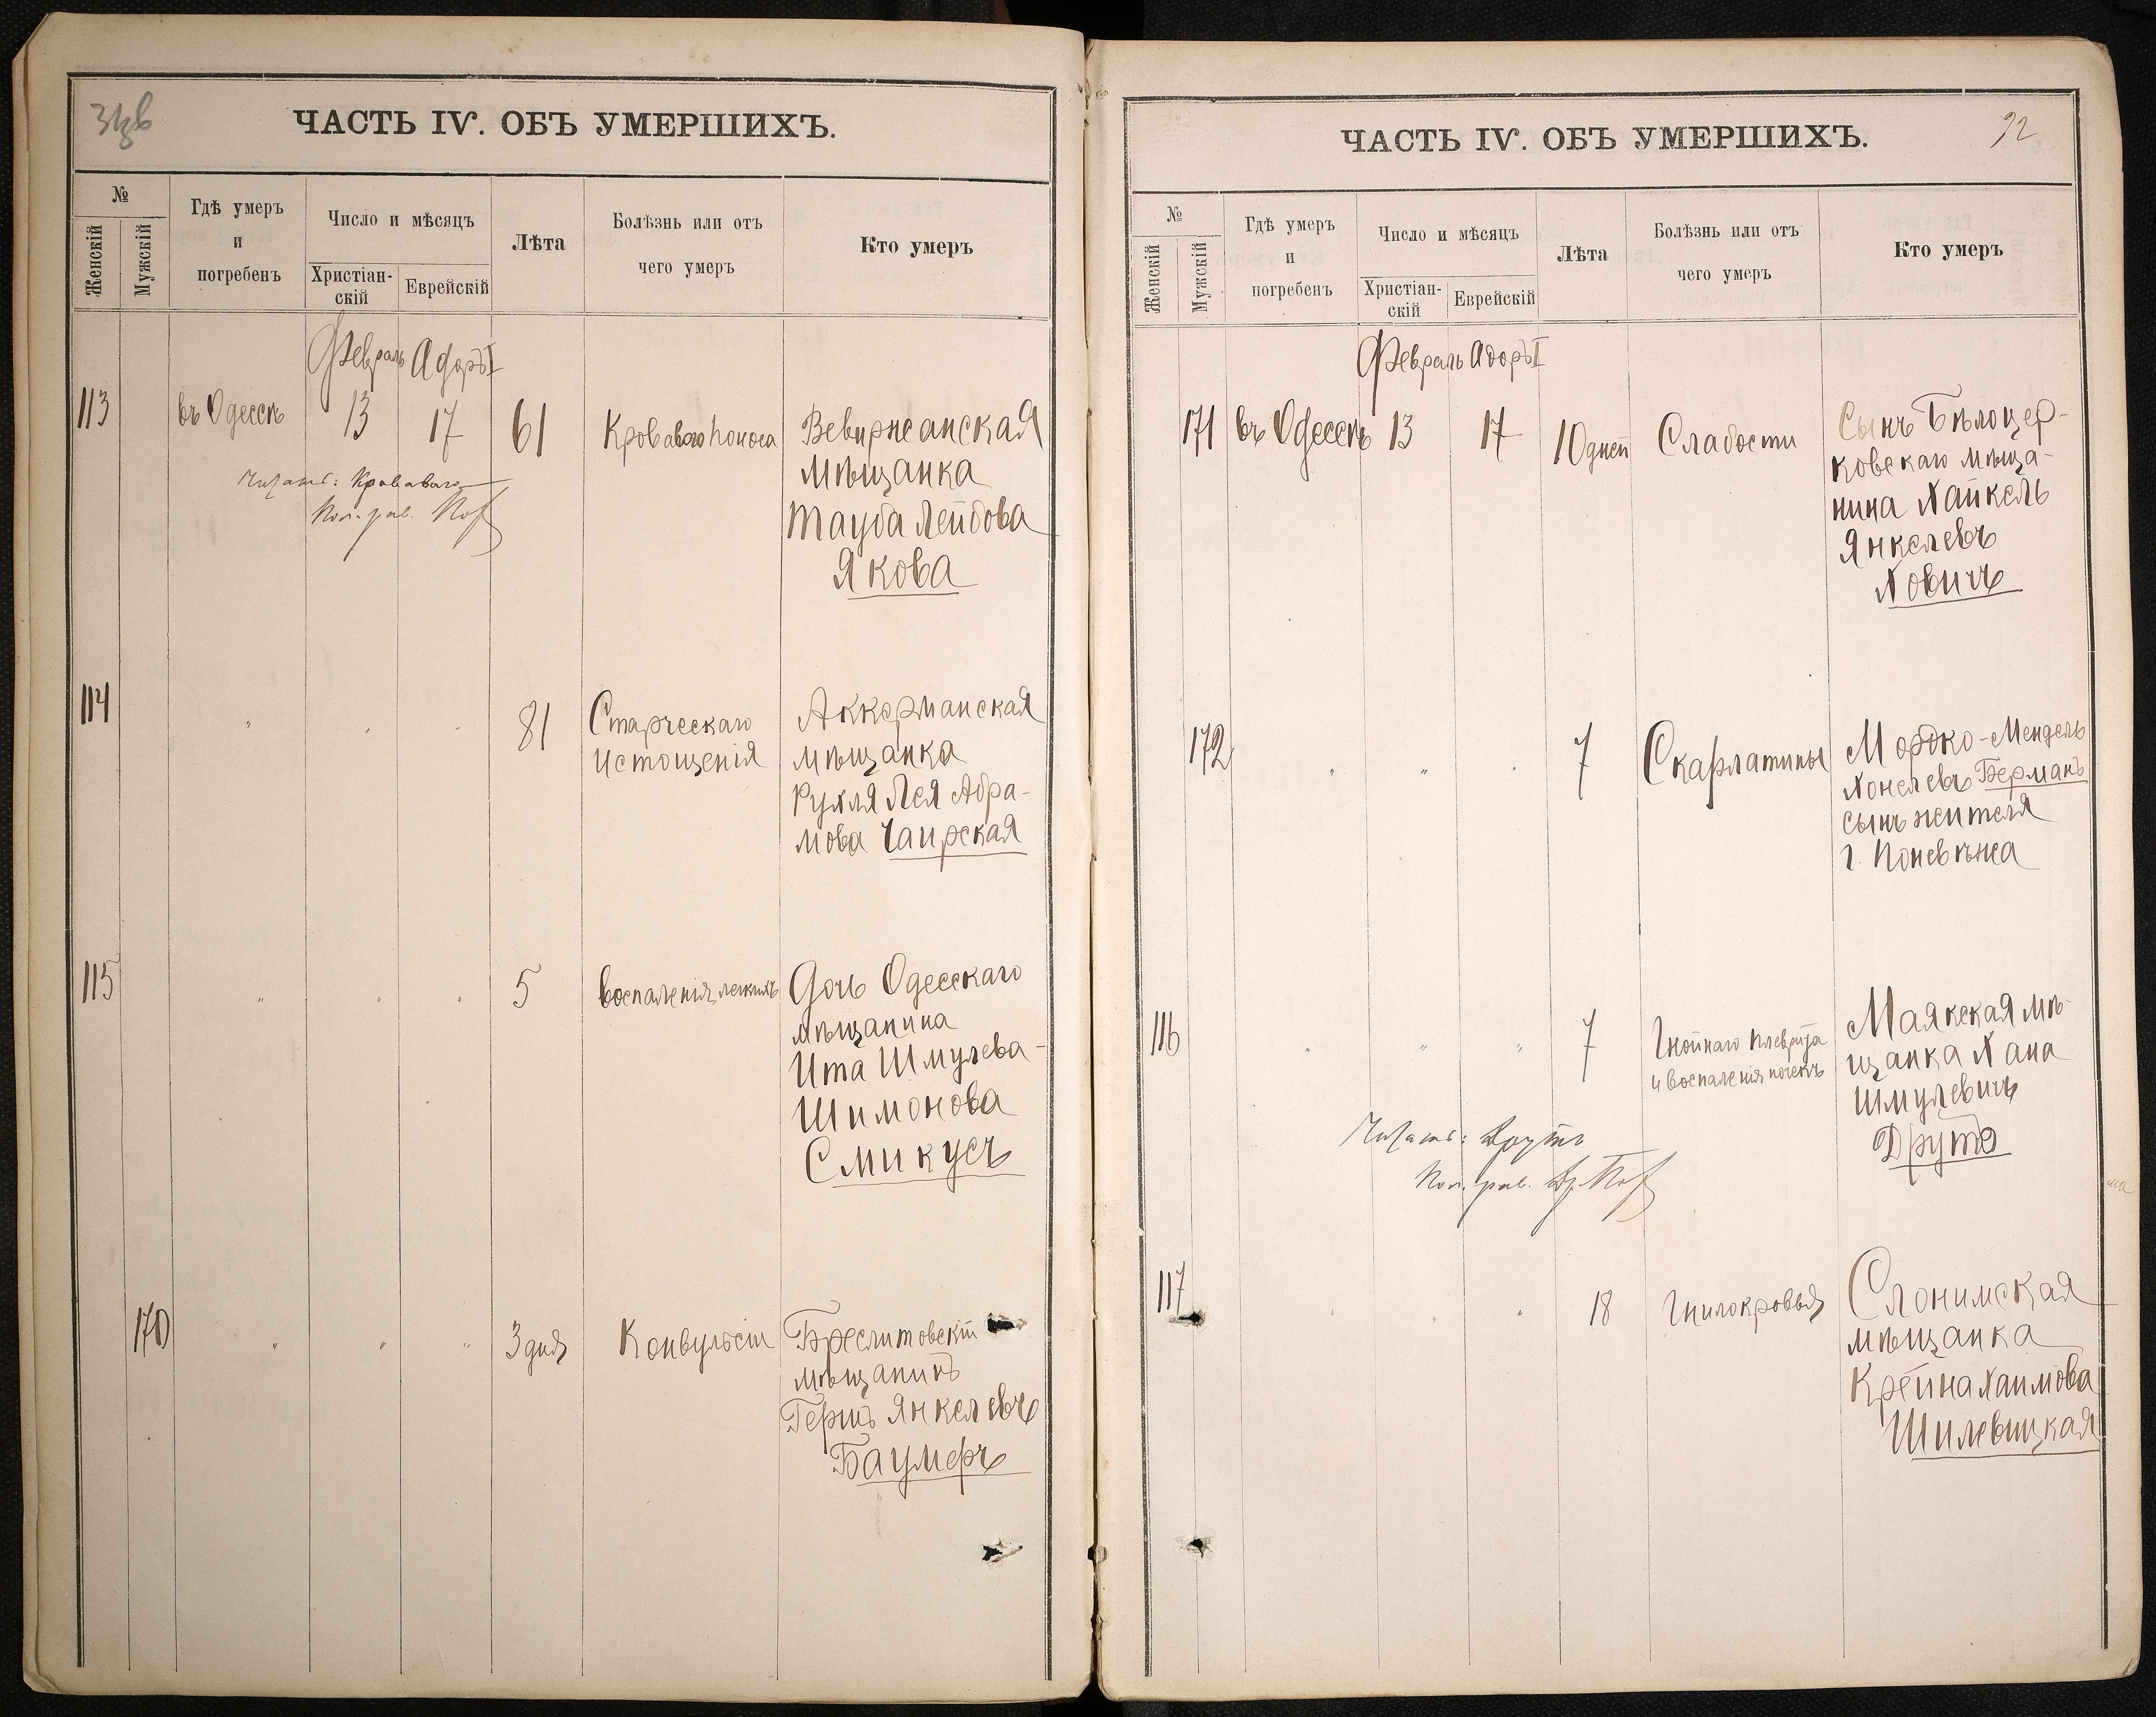 ЧАСТЬ IV. ОБЪ УМЕРШИХЪ.
№
Женскій
Мужскій
Гдѣ умеръ
и
погребенъ
Число и мѣсяцъ
Христіан-
скій
Еврейскій
Лѣта
Болѣзнь или отъ
чего умеръ
Кто умеръ
Февраль Адоръ I
113 въ Одессѣ 13 17 61 Кровавого поноса Вевиржеанская
мѣщанка
Тауба Лейбова
Якова
Читать: Кроваваго
114 " " " 81 Старческаго Аккерманская
истощенія мѣщанка
Рухля Лея Абра-
мова Чаирская
115 " " " 5 Воспаленія легкихъ Дочь Одесскаго
мѣщанина
Ита Шмулева-
Шимонова
Смикусъ
170 " " " 3 дня Конвульсіи Бреслитовскій
мѣщанинъ
Гершъ Янкелевъ
Баумеръ
ЧАСТЬ IV. ОБЪ УМЕРШИХЪ.
92
№
Женскій
Мужскій
Гдѣ умеръ
и
погребенъ
Число и мѣсяцъ
Христіан-
скій
Еврейскій
Лѣта
Болѣзнь или отъ
чего умеръ
Кто умеръ
Февраль Адоръ I
171 въ Одессѣ 13 17 10 дней Слабости Сынъ Бѣлоцер-
ковскаго мѣща-
нина Хайкель
Янкелевъ
Ховичъ
172 " " " 7 Скарлатины Мордко-Мендель
Хонелевъ Берманъ
сынъ жителя
г. Поневѣжа
116 " " " 7 Гнойнаго плеврита Маякская мѣ-
и воспаленія почекъ щанка Хана
Шмулевичъ
Друтъ
Читать: Друтъ
117 " " " 18 Гнилокровья Слонимская
мѣщанка
Крейна Хаимова
Шилевицкая